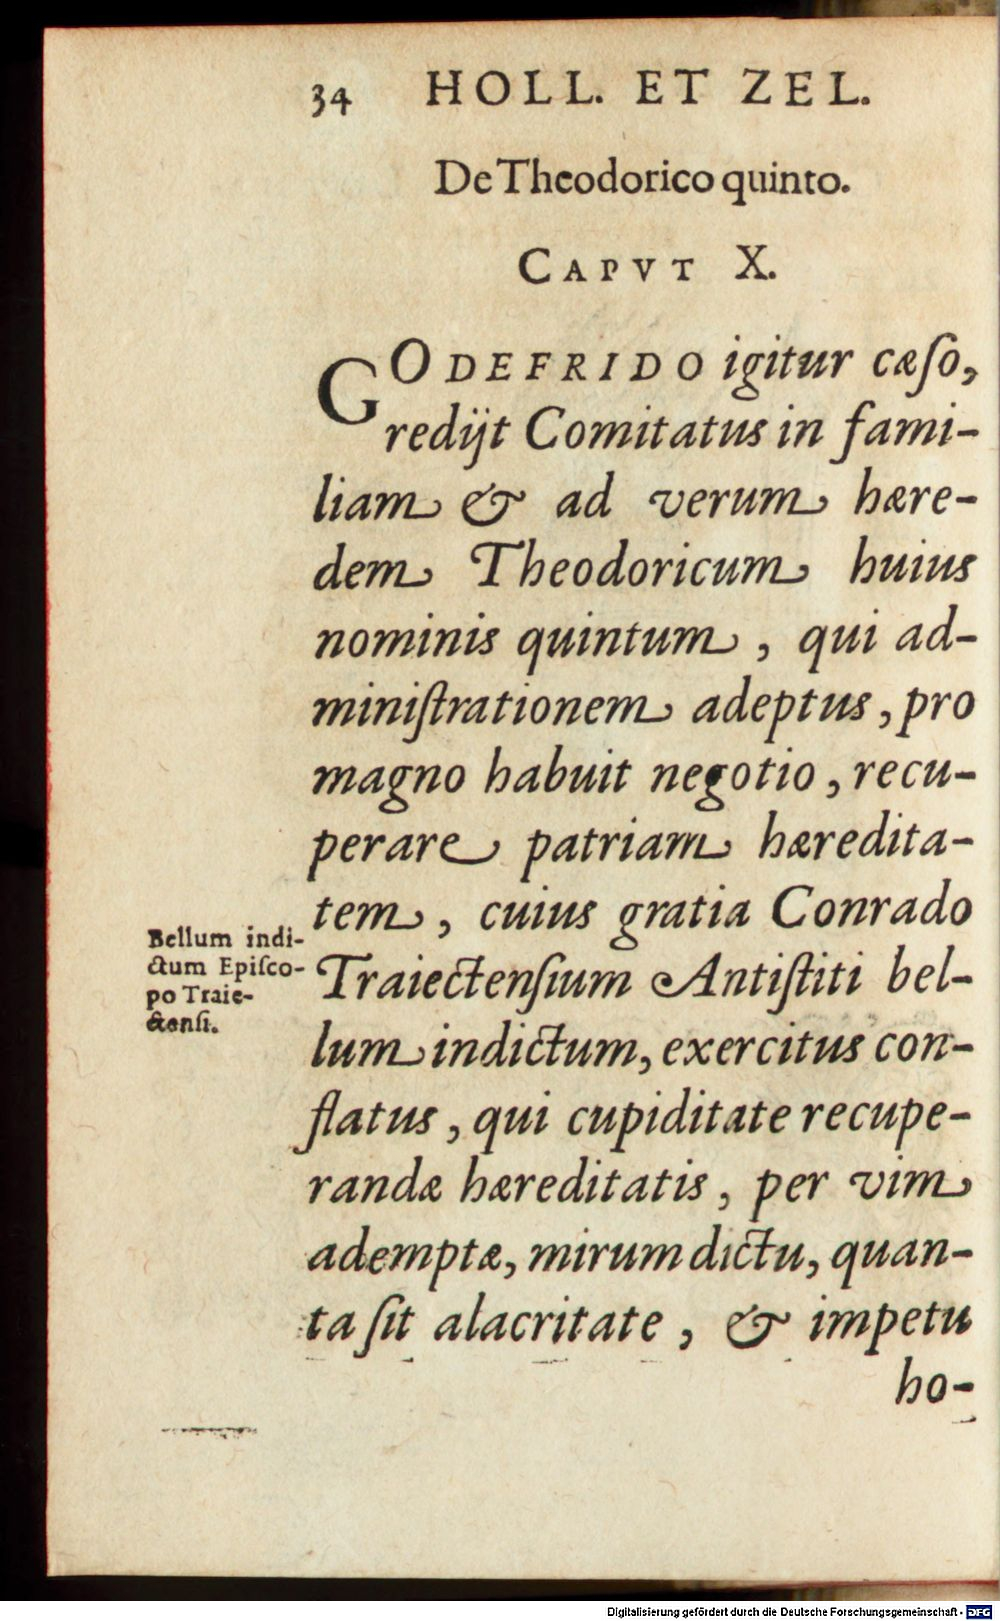 34 HOLL. ET ZEL.
De Theodorico quinto.
CAPVT X.
GODEFRIDO igitur cæſo,
redijt Comitatus in fami-
liam & ad verum hære-
dem Theodoricum huius
nominis quintum, qui ad-
miniſtrationem adeptus, pro
magno habuit negotio, recu-
perare patriam hæredita-
tem, cuius gratia Conrado
Traiectenſium Antiſtiti bel-
lum indictum, exercitus con-
flatus, qui cupiditate recupe-
randæ hæreditatis, per vim
ademptæ, mirum dictu, quan-
ta ſit alacritate, & impetu
ho-
Bellum indi-
ctum Epiſco-
po Traie-
ctenſi.
Digitalisierung gefördert durch die Deutsche Forschungsgemeinschaft - DFG